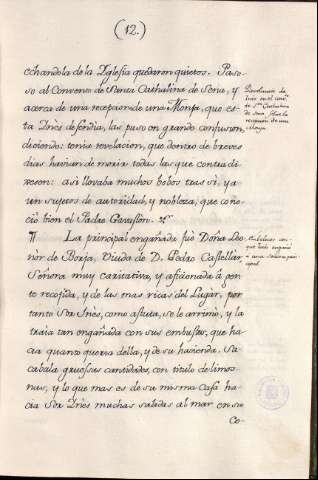 (12.)
echandola de la Yglesia quedaron quietos. Paso-
so al Convento de Santa Cathalina de Sena, y
acerca de una recepcion de una Monja, que es-
ta Ines defendia, las puso en grande confusion,
diciendo: tenia revelacion, que dentro de breves
dias havian de morir todas las que contradi-
xesen: asi llevaba muchos bobos tras si, y a
un sugetos de autoridad, y nobleza; que cono-
ció bien el Padre Gavaston.
¶ La principal engañada fué Doña Leo-
nor de Borja, Viuda de D. Pedro Castellar
Señora muy caritativa, y aficionada á gen-
te recojida, y de las mas ricas del Lugar, por
tanto Sor Ines, como astuta, se le arrimó, y la
traia tan engañada con sus embustes, que ha-
cia quanto queria della, y de su hacienda. Sa-
cabala gruessas cantidades, con titulo de limos-
nas, y lo que mas es de su misma Casa ha-
cia Sor Ines muchas salidas al mar en su
Co-
de Sta Cathalina
de Sena sobre la
recepcion de una
Monja